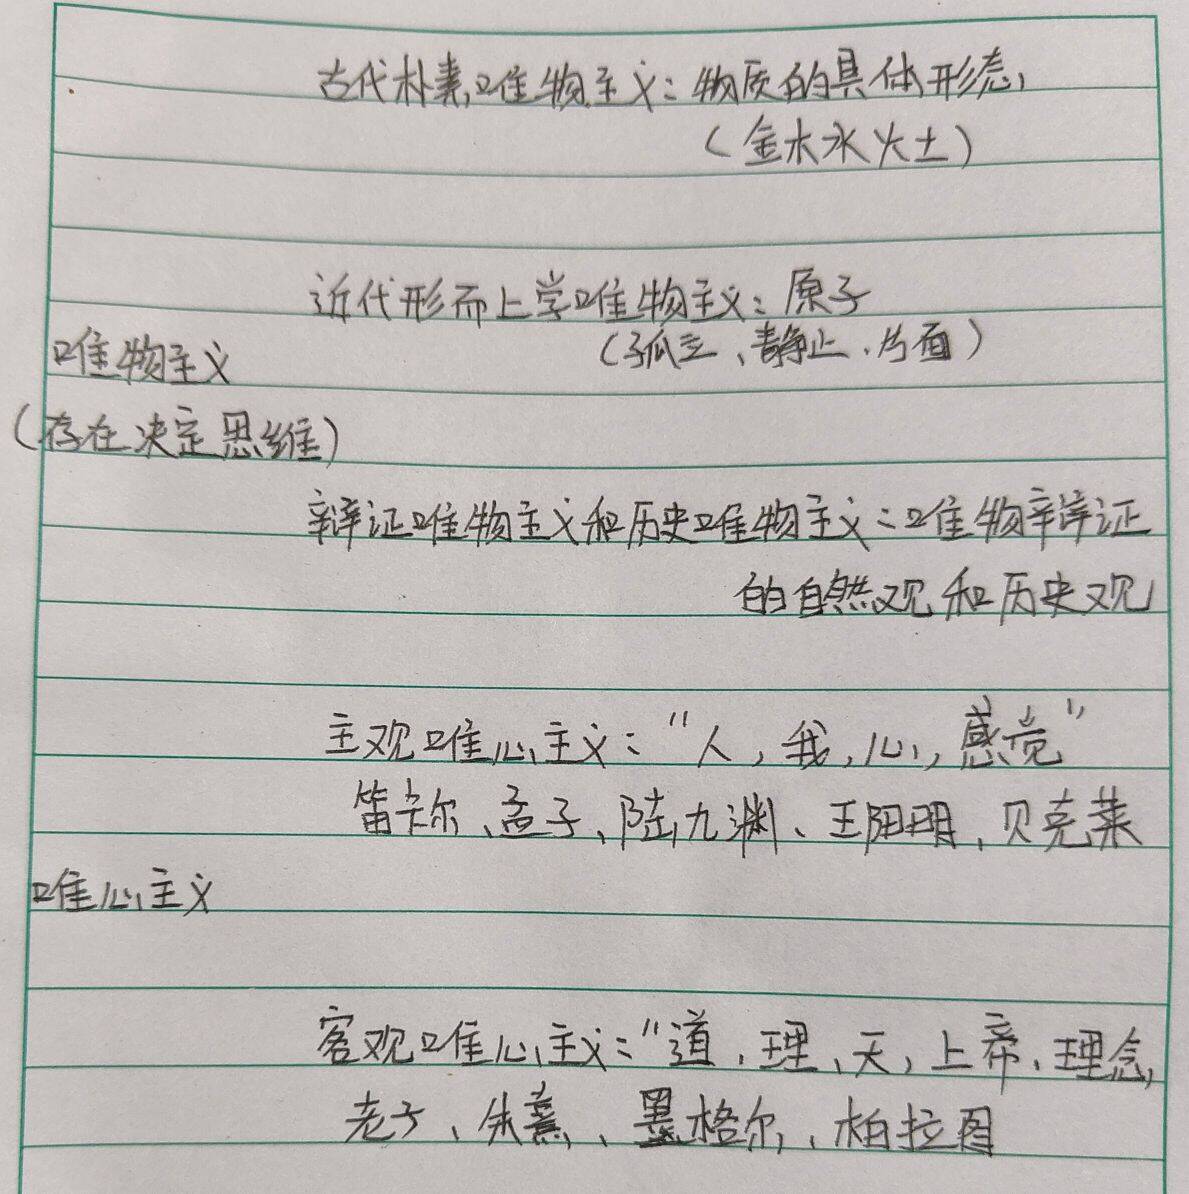 古代朴素唯物主义：物质的具体形态，
（金木水火土）
近代形而上学唯物主义：原子
（孤立、静止、片面）
唯物主义
（存在决定思维）
辩证唯物主义和历史唯物主义：唯物辩证
的自然观和历史观
主观唯心主义：“人，我，心，感觉”
笛卡尔、孟子、陆九渊、王阳明、贝克莱
唯心主义
客观唯心主义：“道、理、天，上帝、理念，
老子、朱熹、黑格尔、柏拉图